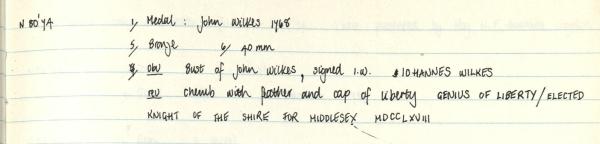 N 80'74 1, Medal : John Wilkes 1768
5, Bronze 6, 40 mm
8, obv Bust of John Wilkes, signed I.W. IOHANNES WILKES
rev cherub with feather and cap of liberty GENIUS OF LIBERTY/ELECTED
KNIGHT OF THE SHIRE FOR MIDDLESEX MDCCLXVIII